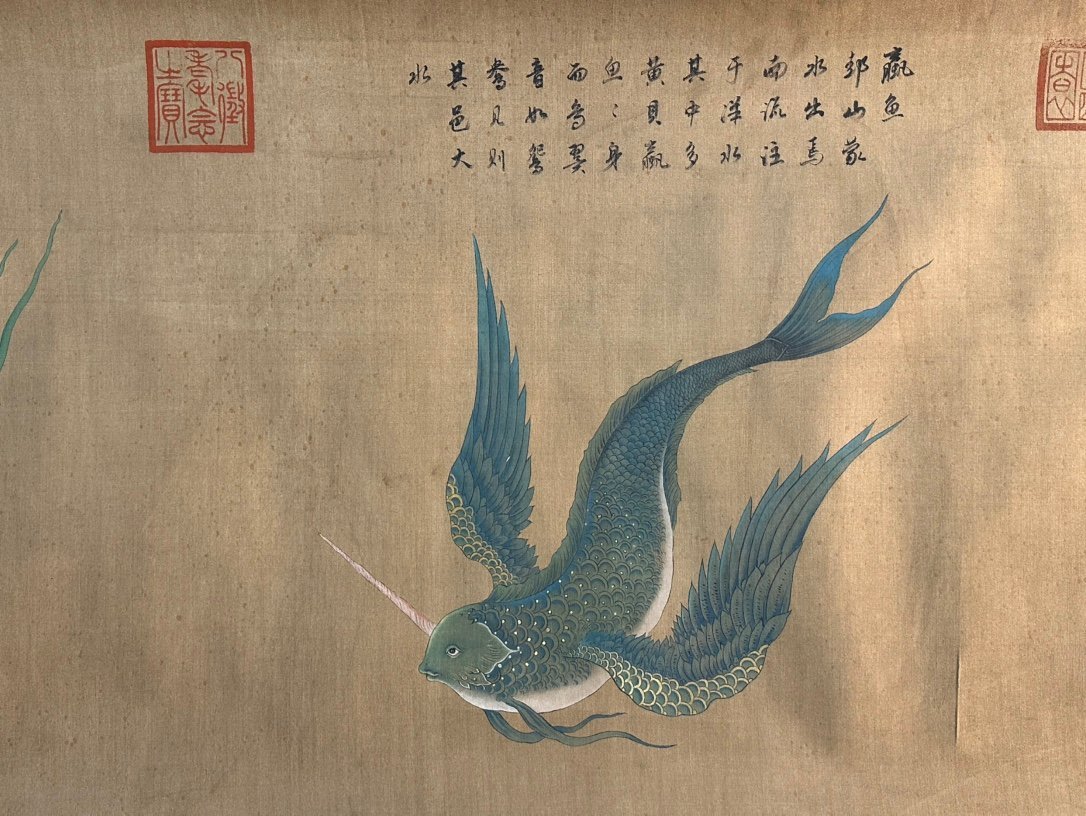 蠃魚
邽山蒙
水出焉
南流注
于洋水
其中多
黄貝蠃
魚〻身
而鳥翼
音如鴛
鴦見則
其邑大
水
八徵
耄念
之寶